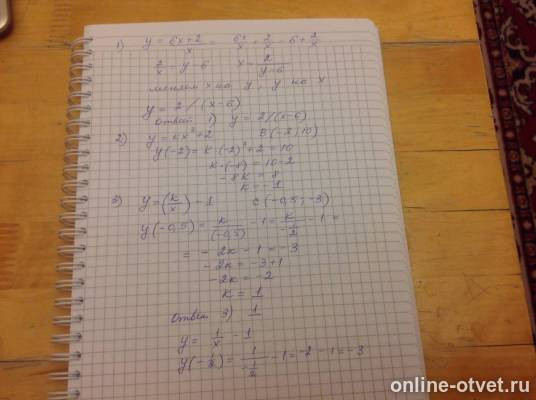 1) y = 6x+2/x = 6x/x + 2/x = 6 + 2/x
2/x = y - 6 x = 2/y-6
меняем x на y, y на x
y = 2/(x-6)
Ответ 1) y = 2/(x-6)
2) y = kx³+2 B(-2; 10)
y(-2) = k·(-2)³+2 = 10
k·(-8) = 10-2
-8k = 8
k = -1
3) y = (k/x) - 1 C(-0,5; -3)
y(-0,5) = k/(-0,5) - 1 = k/-1/2 - 1 =
= -2k - 1 = -3
-2k = -3+1
-2k = -2
k = 1
Ответ 3) 1
y = 1/x - 1
y(-1/2) = 1/-1/2 - 1 = -2 - 1 = -3
online-otvet.ru